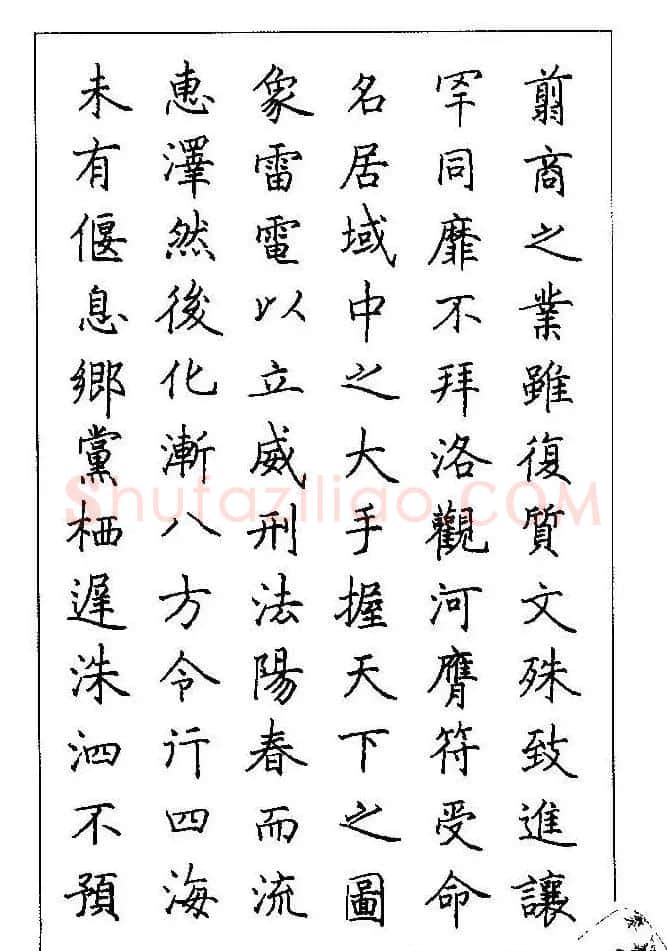 翦商之業雖復質文殊致進讓
罕同靡不拜洛觀河膺符受命
名居域中之大手握天下之圖
象雷電以立威刑法陽春而流
惠澤然後化漸八方令行四海
未有偃息鄉黨栖遲洙泗不預
Shufaziliao.COM